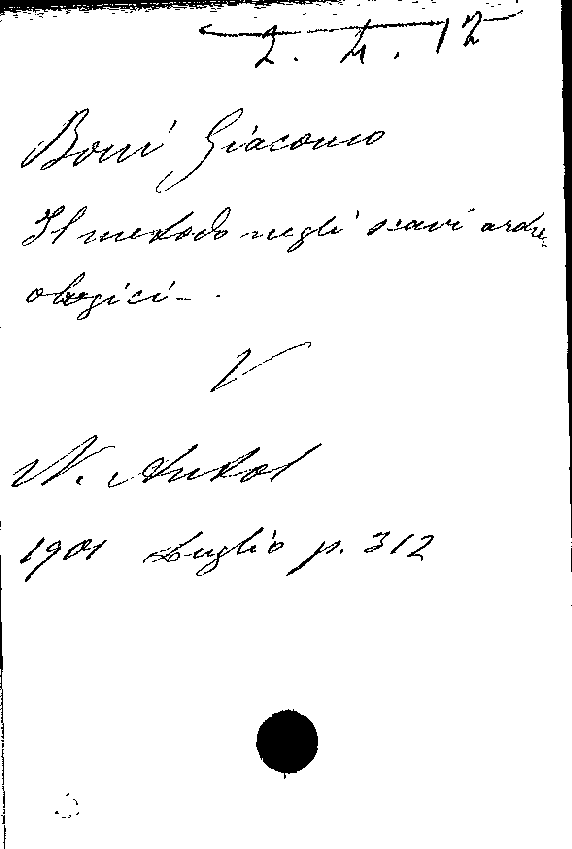 2. 4. 12
Boni Giacomo
Il metodo negli scavi arche-
ologici - .
V
N. Antol
1901 Luglio p. 312